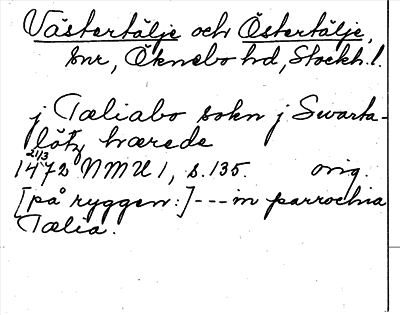 Västertälje och Östertälje,
snr, Öknebo hd, Stockh. l.
j Tæliabo sokn j Swarta-
lötz hærede
21/3
1472 NMU 1, s. 135. orig.
[på ryggen:] --- in parrochia
Tælia.